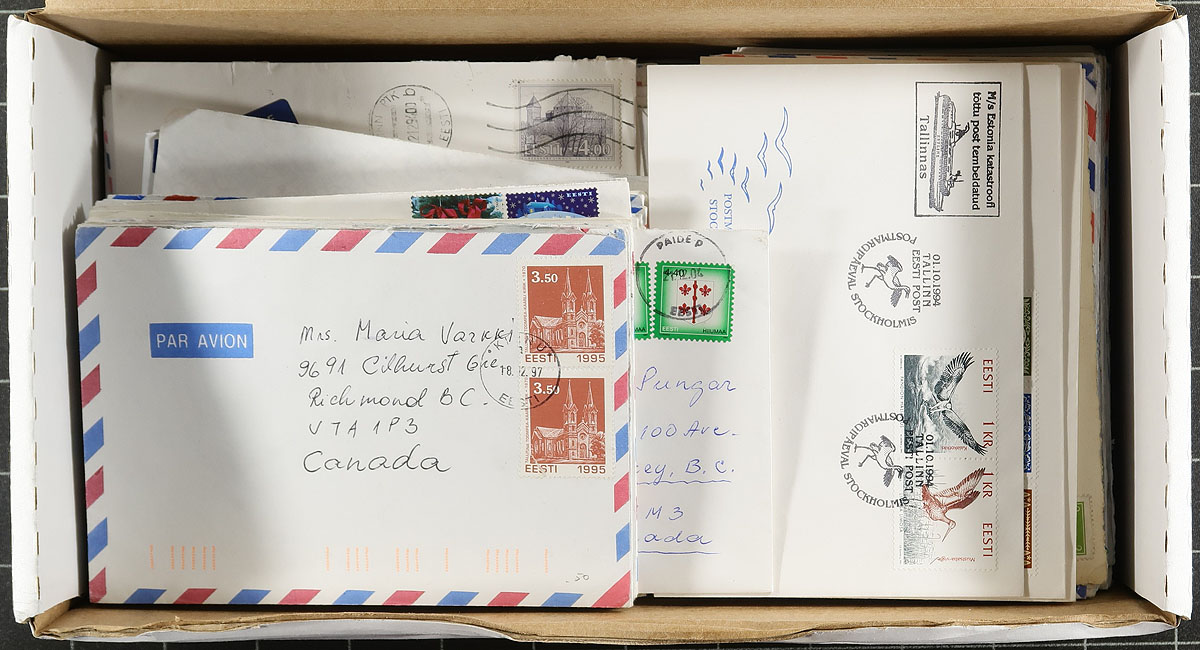 EESTI 4.00
EESTI
EESTI
PAR AVION
Mrs. Maria Varkki
9691 Cilhurst
Richmond BC.
V7A 1P3
Canada
3.50
EESTI 1995
3.50
EESTI 1995
18.12.97
EESTI
.50
PAIDE P
EESTI
4.40
EESTI HIIUMAA
Pungar
100 Ave.
ey, B.C.
M3
ada
M/s Estonia katastroofi
tõttu post tembeldatud
Tallinnas
01.10.1994
TALLINN
EESTI POST
POSTMARGIPÄEVAL STOCKHOLMIS
EESTI 1 KR
EESTI 1 KR
01.10.1994
TALLINN
EESTI POST
POSTMARGIPÄEVAL STOCKHOLMIS